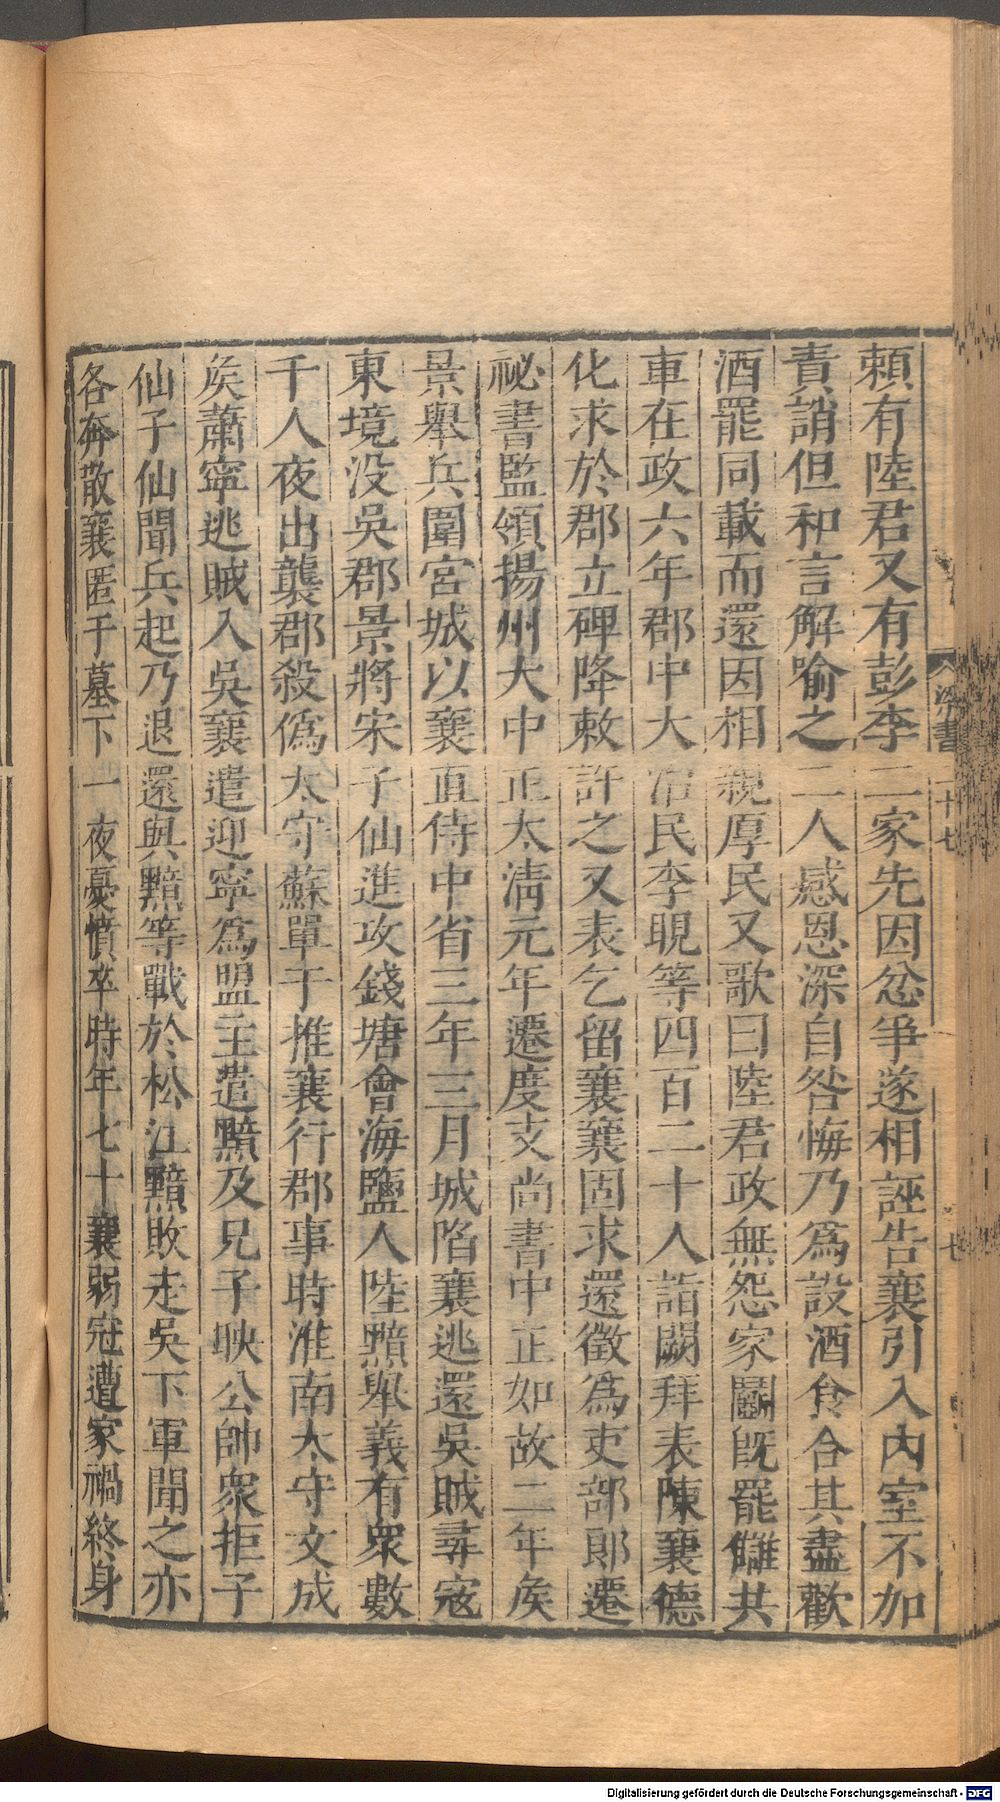 賴有陸君又有彭李二家先因忿爭遂相誣告襄引入內室不加
責誚但和言解喻之二人感恩深自咎悔乃爲設酒食令其盡歡
酒罷同載而還因相親厚民又歌曰陸君政無怨家鬬旣罷讎共
車在政六年郡中大治民李睍等四百二十人詣闕拜表陳襄德
化求於郡立碑降敕許之又表乞留襄襄固求還徵爲吏部郎遷
祕書監領揚州大中正太淸元年遷度支尚書中正如故二年矦
景舉兵圍宮城以襄直侍中省三年三月城陷襄逃還吳賊尋寇
東境没吳郡景將宋子仙進攻錢塘會海鹽人陸黯舉義有衆數
千人夜出襲郡殺僞太守蘇單于推襄行郡事時淮南太守文成
矦蕭寧逃賊入吳襄遣迎寧爲盟主遣黯及兄子映公帥衆拒子
仙子仙聞兵起乃退還與黯等戰於松江黯敗走吳下軍聞之亦
各奔散襄匿于墓下一夜憂憤卒時年七十襄弱冠遭家禍終身
梁書
二十七
七
Digitalisierung gefördert durch die Deutsche Forschungsgemeinschaft - DFG